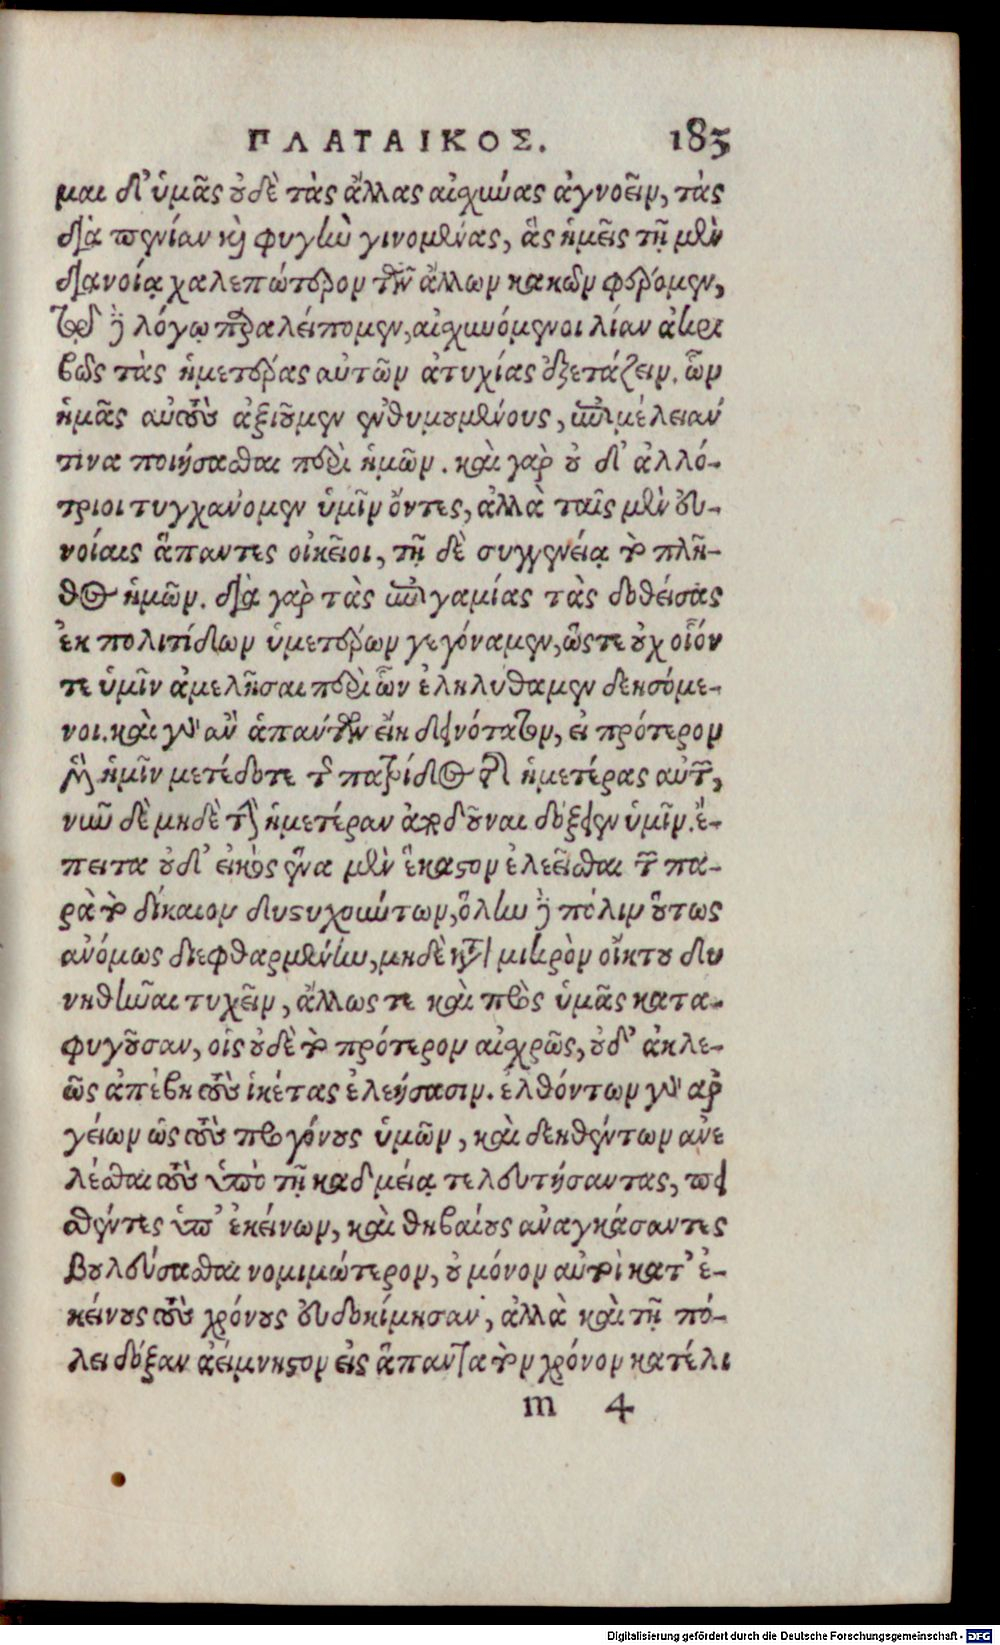 ΠΛΑΤΑΙΚΟΣ. 185
μαι δ' ὑμᾶς οὐδὲ τὰς ἄλλας αἰσχύνας ἀγνοεῖν, τὰς
διὰ πενίαν καὶ φυγὴν γινομένας, ἃς ἡμεῖς τῇ μὲν
διανοίᾳ χαλεπώτερον τῶν ἄλλων κακῶν φέρομεν,
τῷ δὲ λόγῳ παραλείπομεν, αἰσχυνόμενοι λίαν ἀκρι
βῶς τὰς ἡμετέρας αὐτῶν ἀτυχίας ἐξετάζειν. ὧν
ἡμᾶς αὐτοὺς ἀξιοῦμεν ἐνθυμουμένους, ἐπιμέλειάν
τινα ποιήσασθαι περὶ ἡμῶν. καὶ γὰρ οὐδ' ἀλλό-
τριοι τυγχάνομεν ὑμῖν ὄντες, ἀλλὰ ταῖς μὲν εὐ-
νοίαις ἅπαντες οἰκεῖοι, τῇ δὲ συγγενείᾳ τὸ πλῆ-
θος ἡμῶν. διὰ γὰρ τὰς ἐπιγαμίας τὰς δοθείσας
ἐκ πολιτίδων ὑμετέρων γεγόναμεν, ὥστε οὐχ οἷόν
τε ὑμῖν ἀμελῆσαι περὶ ὧν ἐληλύθαμεν δεησόμε-
νοι. καὶ γὰρ ἂν ἁπάντων εἴη δεινότατον, εἰ πρότερον
μὲν ἡμῖν μετέδοτε τῆς πατρίδος τῆς ἡμετέρας αὐτῶν,
νῦν δὲ μηδὲ τὴν ἡμετέραν ἀποδοῦναι δόξειεν ὑμῖν. ἔ-
πειτα οὐδ' εἰκὸς ἕνα μὲν ἕκαστον ἐλεεῖσθαι τῶν πα-
ρὰ τὸ δίκαιον δυστυχούντων, ὅλην δὲ πόλιν οὕτως
ἀνόμως διεφθαρμένην, μηδὲ κατὰ μικρὸν οἴκτου δυ
νηθῆναι τυχεῖν, ἄλλως τε καὶ πρὸς ὑμᾶς κατα-
φυγοῦσαν, οἷς οὐδὲ τὸ πρότερον αἰσχρῶς, οὐδ' ἀκλε-
ῶς ἀπέβη τοὺς ἱκέτας ἐλεήσασιν. ἐλθόντων γὰρ ἀρ
γείων ὡς τοὺς προγόνους ὑμῶν, καὶ δεηθέντων ἀνε
λέσθαι τοὺς ὑπὸ τῇ καδμείᾳ τελευτήσαντας, πει
σθέντες ὑπ' ἐκείνων, καὶ θηβαίους ἀναγκάσαντες
βουλεύσασθαι νομιμώτερον, οὐ μόνον αὐτοὶ κατ' ἐ-
κείνους τοὺς χρόνους εὐδοκίμησαν, ἀλλὰ καὶ τῇ πό-
λει δόξαν ἀείμνηστον εἰς ἅπαντα τὸν χρόνον κατέλι
m 4
Digitalisierung gefördert durch die Deutsche Forschungsgemeinschaft - DFG